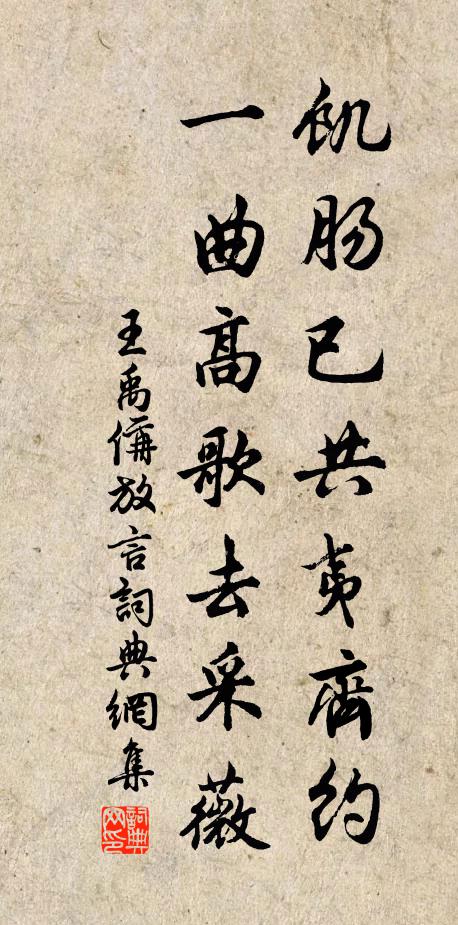 飢腸已共夷齊約
一曲高歌去采薇
王禹偁放言詞典網集
詞典网印